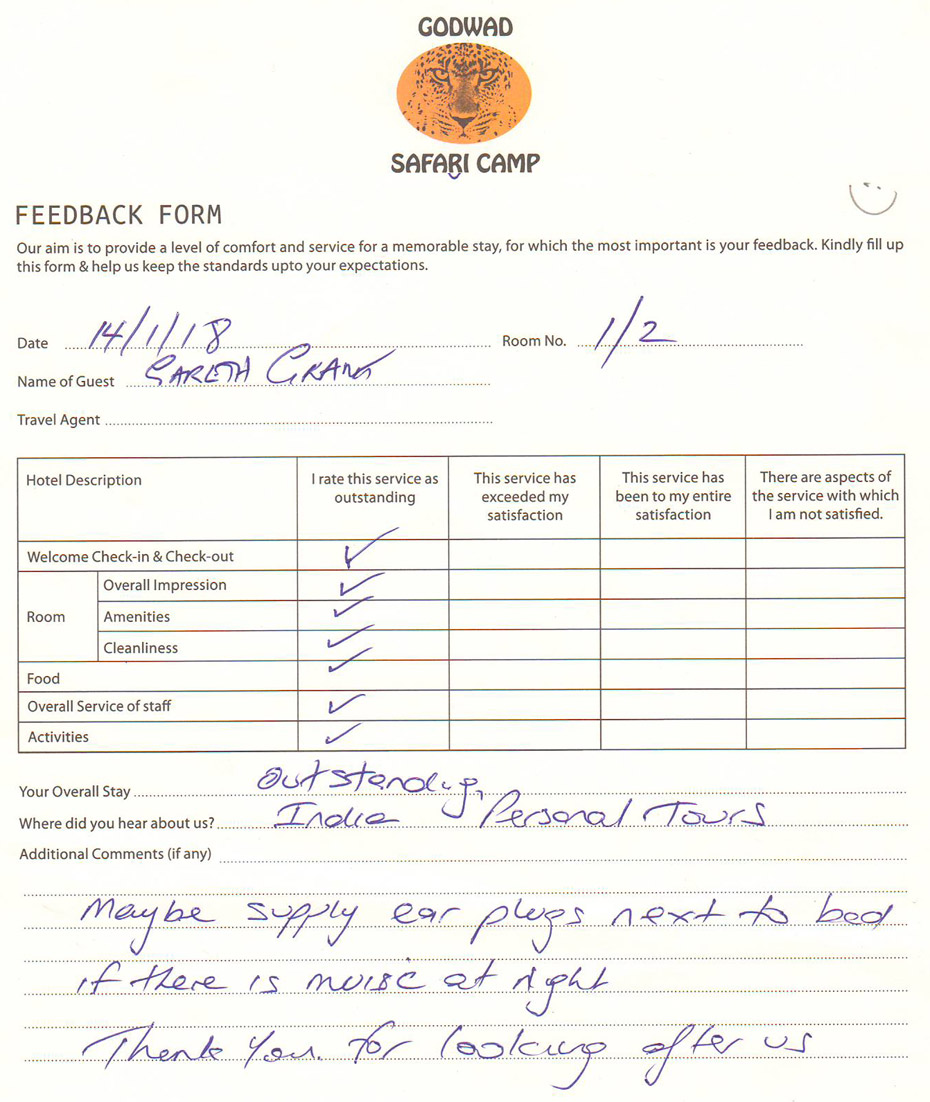 GODWAD
SAFARI CAMP
FEEDBACK FORM
Our aim is to provide a level of comfort and service for a memorable stay, for which the most important is your feedback. Kindly fill up
this form & help us keep the standards upto your expectations.
Date 14/1/18 Room No. 1/2
Name of Guest GARETH GRANT
Travel Agent
Hotel Description
I rate this service as
outstanding
This service has
exceeded my
satisfaction
This service has
been to my entire
satisfaction
There are aspects of
the service with which
I am not satisfied.
Welcome Check-in & Check-out ✓
Room
Overall Impression ✓
Amenities ✓
Cleanliness ✓
Food ✓
Overall Service of staff ✓
Activities ✓
Your Overall Stay Outstanding,
Where did you hear about us? India Personal Tours
Additional Comments (if any)
Maybe supply ear plugs next to bed
if there is muisc at night
Thank You. for looking after us